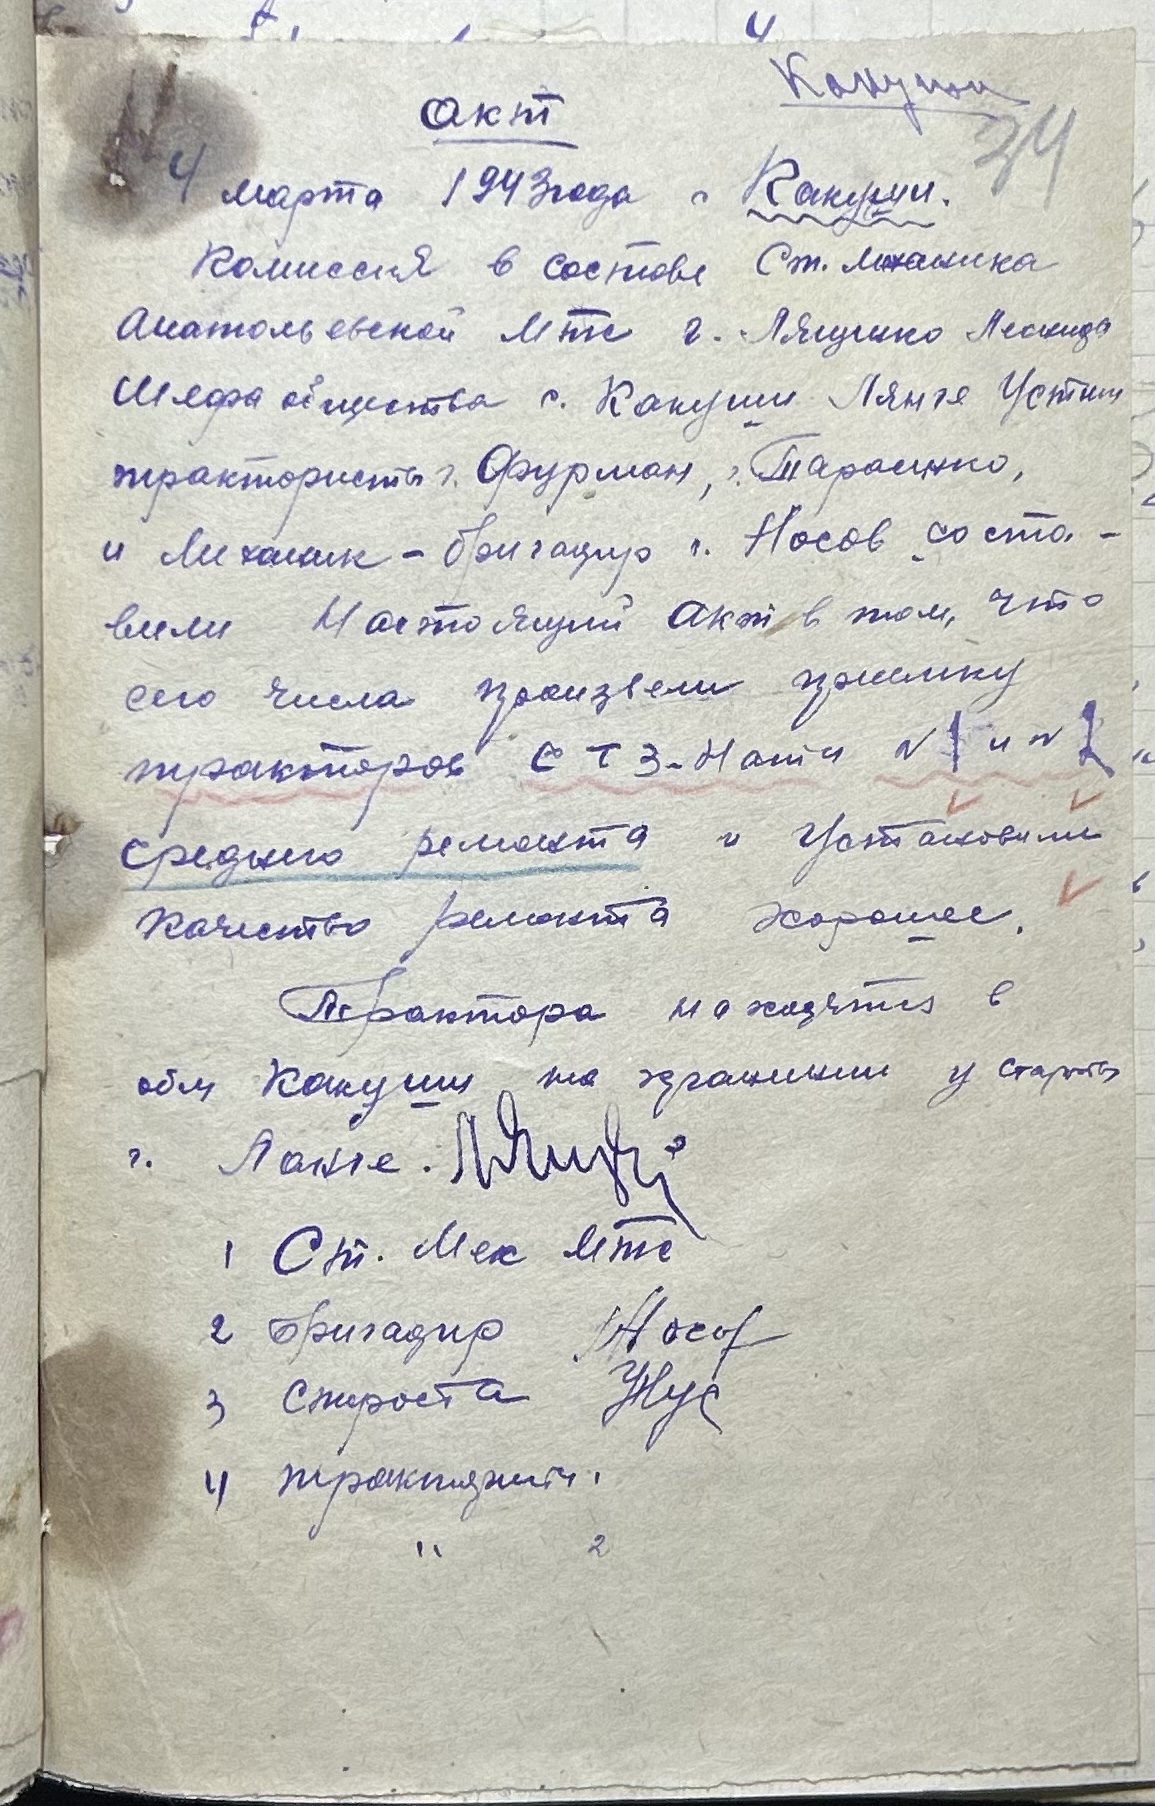 Какуши
34
Акт
4 марта 1943 года с Какуши.
Комиссия в составе Ст. механика
Анатольевской Мтс г. Лящико Леонида
Шефа общества с. Какуши Лянге Устин
трактористы г. Фурман, г. Тарасико,
и Механик - бригадир г. Носов соста-
вили Настоящий акт в том, что
сего числа произвели приемку
тракторов СТЗ-Нати N 1 и N 2
среднего ремонта и Установили
качество ремонта хорошее.
Трактора находятся в
общ Какуши на хранении у старосты
г. Ланге.
1 Ст. Мех Мтс
2 Бригадир Носов
3 Староста
4 трактористы 1
" 2